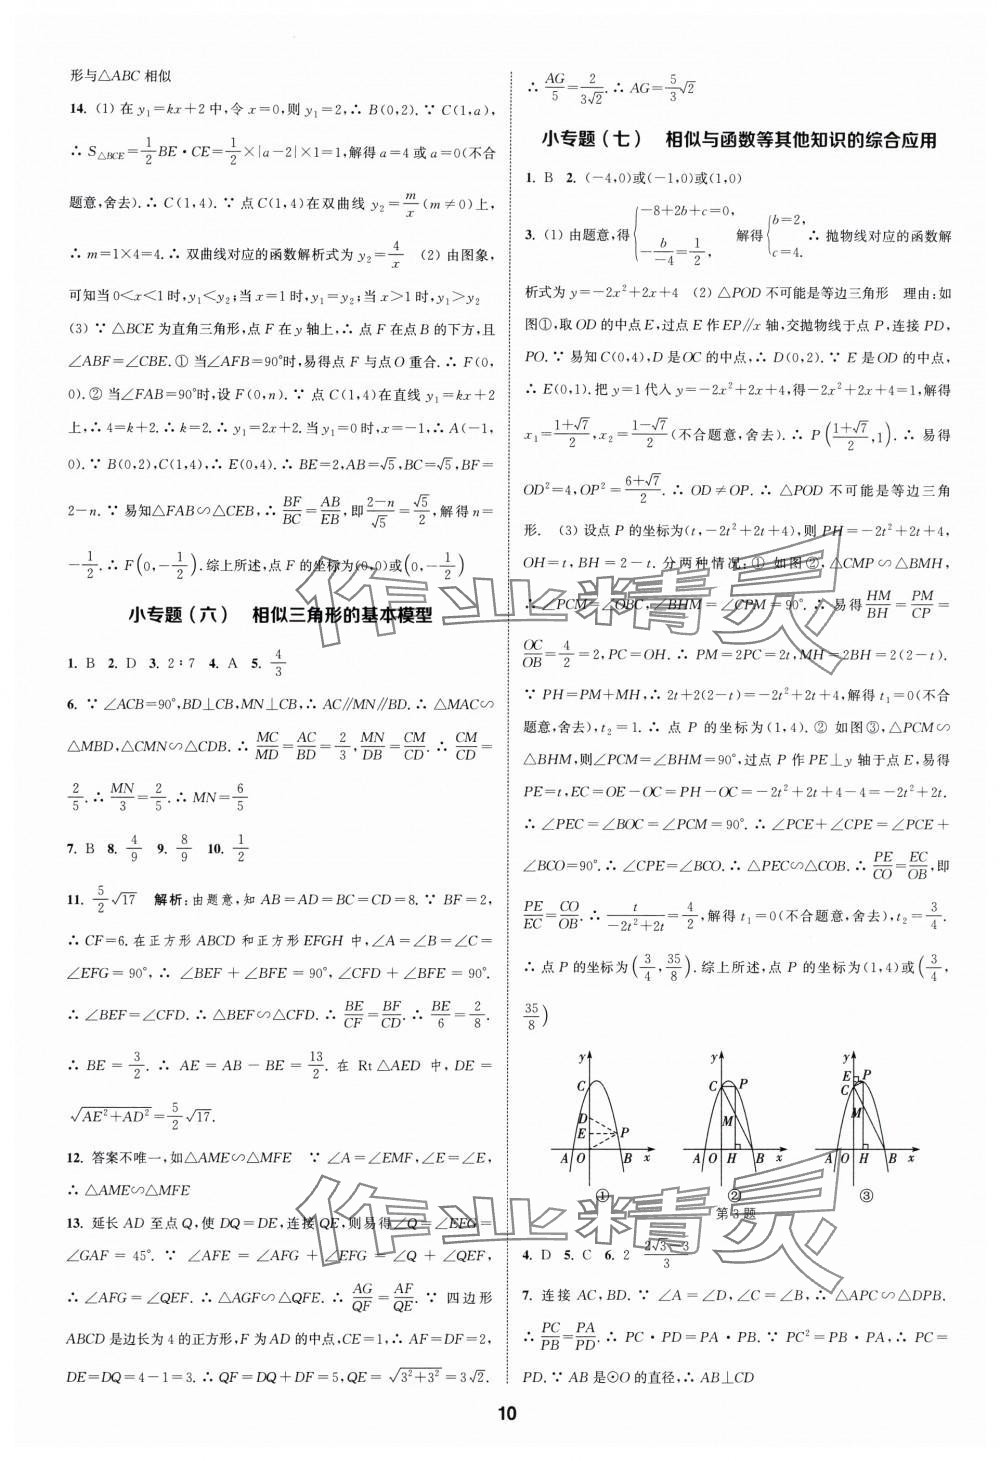 形与△ABC 相似
14. (1) 在 y₁=kx+2 中,令 x=0,则 y₁=2,∴ B(0,2). ∵ C(1,a),
∴ S△BCE=1/2 BE·CE=1/2×|a-2|×1=1,解得 a=4 或 a=0(不合
题意,舍去).∴ C(1,4). ∵ 点 C(1,4)在双曲线 y₂=m/x(m≠0)上,
∴ m=1×4=4.∴ 双曲线对应的函数解析式为 y₂=4/x (2) 由图象,
可知当 0<x<1 时,y₁<y₂;当 x=1 时,y₁=y₂;当 x>1 时,y₁>y₂
(3) ∵ △BCE 为直角三角形,点 F 在 y 轴上,∴ 点 F 在点 B 的下方,且
∠ABF=∠CBE. ① 当∠AFB=90°时,易得点 F 与点 O 重合.∴ F(0,
0).② 当∠FAB=90°时,设 F(0,n). ∵ 点 C(1,4)在直线 y₁=kx+2
上,∴ 4=k+2.∴ k=2.∴ y₁=2x+2.当 y₁=0 时,x=-1,∴ A(-1,
0). ∵ B(0,2),C(1,4),∴ E(0,4).∴ BE=2,AB=√5,BC=√5,BF=
2-n. ∵ 易知△FAB∽△CEB,∴ BF/BC=AB/EB,即(2-n)/√5=√5/2,解得 n=
-1/2.∴ F(0,-1/2).综上所述,点 F 的坐标为(0,0)或(0,-1/2)
小专题(六) 相似三角形的基本模型
1. B 2. D 3. 2∶7 4. A 5. 4/3
6. ∵ ∠ACB=90°,BD⊥CB,MN⊥CB,∴ AC∥MN∥BD.∴ △MAC∽
△MBD,△CMN∽△CDB.∴ MC/MD=AC/BD=2/3,MN/DB=CM/CD.∴ CM/CD=
2/5.∴ MN/3=2/5.∴ MN=6/5
7. B 8. 4/9 9. 8/9 10. 1/2
11. 5/2√17 解析:由题意,知 AB=AD=BC=CD=8. ∵ BF=2,
∴ CF=6.在正方形 ABCD 和正方形 EFGH 中,∠A=∠B=∠C=
∠EFG=90°,∴ ∠BEF+∠BFE=90°,∠CFD+∠BFE=90°.
∴ ∠BEF=∠CFD.∴ △BEF∽△CFD.∴ BE/CF=BF/CD.∴ BE/6=2/8.
∴ BE=3/2.∴ AE=AB-BE=13/2.在 Rt△AED 中,DE=
√(AE²+AD²)=5/2√17.
12. 答案不唯一,如△AME∽△MFE ∵ ∠A=∠EMF,∠E=∠E,
∴ △AME∽△MFE
13. 延长 AD 至点 Q,使 DQ=DE,连接 QE,则易得∠Q=∠EFG=
∠GAF=45°. ∵ ∠AFE=∠AFG+∠EFG=∠Q+∠QEF,
∴ ∠AFG=∠QEF.∴ △AGF∽△QFE.∴ AG/QF=AF/QE. ∵ 四边形
ABCD 是边长为 4 的正方形,F 为 AD 的中点,CE=1,∴ AF=DF=2,
DE=DQ=4-1=3.∴ QF=DQ+DF=5,QE=√(3²+3²)=3√2.
∴ AG/5=2/(3√2).∴ AG=5/3√2
小专题(七) 相似与函数等其他知识的综合应用
1. B 2. (-4,0)或(-1,0)或(1,0)
3. (1) 由题意,得{-8+2b+c=0, -b/-4=1/2, 解得{b=2, c=4. ∴ 抛物线对应的函数解
析式为 y=-2x²+2x+4 (2) △POD 不可能是等边三角形 理由:如
图①,取 OD 的中点 E,过点 E 作 EP∥x 轴,交抛物线于点 P,连接 PD,
PO. ∵ 易知 C(0,4),D 是 OC 的中点,∴ D(0,2). ∵ E 是 OD 的中点,
∴ E(0,1).把 y=1 代入 y=-2x²+2x+4,得-2x²+2x+4=1,解得
x₁=(1+√7)/2,x₂=(1-√7)/2(不合题意,舍去).∴ P((1+√7)/2,1).∴ 易得
OD²=4,OP²=(6+√7)/2.∴ OD≠OP.∴ △POD 不可能是等边三角
形. (3) 设点 P 的坐标为(t,-2t²+2t+4),则 PH=-2t²+2t+4,
OH=t,BH=2-t.分两种情况:① 如图②,△CMP∽△BMH,
∴ ∠PCM=∠OBC,∠BHM=∠CPM=90°.∴ 易得 HM/BH=PM/CP=
OC/OB=4/2=2,PC=OH.∴ PM=2PC=2t,MH=2BH=2(2-t).
∵ PH=PM+MH,∴ 2t+2(2-t)=-2t²+2t+4,解得 t₁=0(不合
题意,舍去),t₂=1.∴ 点 P 的坐标为(1,4).② 如图③,△PCM∽
△BHM,则∠PCM=∠BHM=90°,过点 P 作 PE⊥y 轴于点 E,易得
PE=t,EC=OE-OC=PH-OC=-2t²+2t+4-4=-2t²+2t.
∴ ∠PEC=∠BOC=∠PCM=90°.∴ ∠PCE+∠CPE=∠PCE+
∠BCO=90°.∴ ∠CPE=∠BCO.∴ △PEC∽△COB.∴ PE/CO=EC/OB,即
PE/EC=CO/OB.∴ t/(-2t²+2t)=4/2,解得 t₁=0(不合题意,舍去),t₂=3/4.
∴ 点 P 的坐标为(3/4,35/8).综上所述,点 P 的坐标为(1,4)或(3/4,
35/8)
y C D E P A O B x ①
y C P M A O H B x ②
y E P C M A O H B x ③
第 3 题
4. D 5. C 6. 2 (2√3-3)/3
7. 连接 AC,BD. ∵ ∠A=∠D,∠C=∠B,∴ △APC∽△DPB.
∴ PC/PB=PA/PD.∴ PC·PD=PA·PB. ∵ PC²=PB·PA,∴ PC=
PD. ∵ AB 是⊙O 的直径,∴ AB⊥CD
10
作业精灵
作业精灵